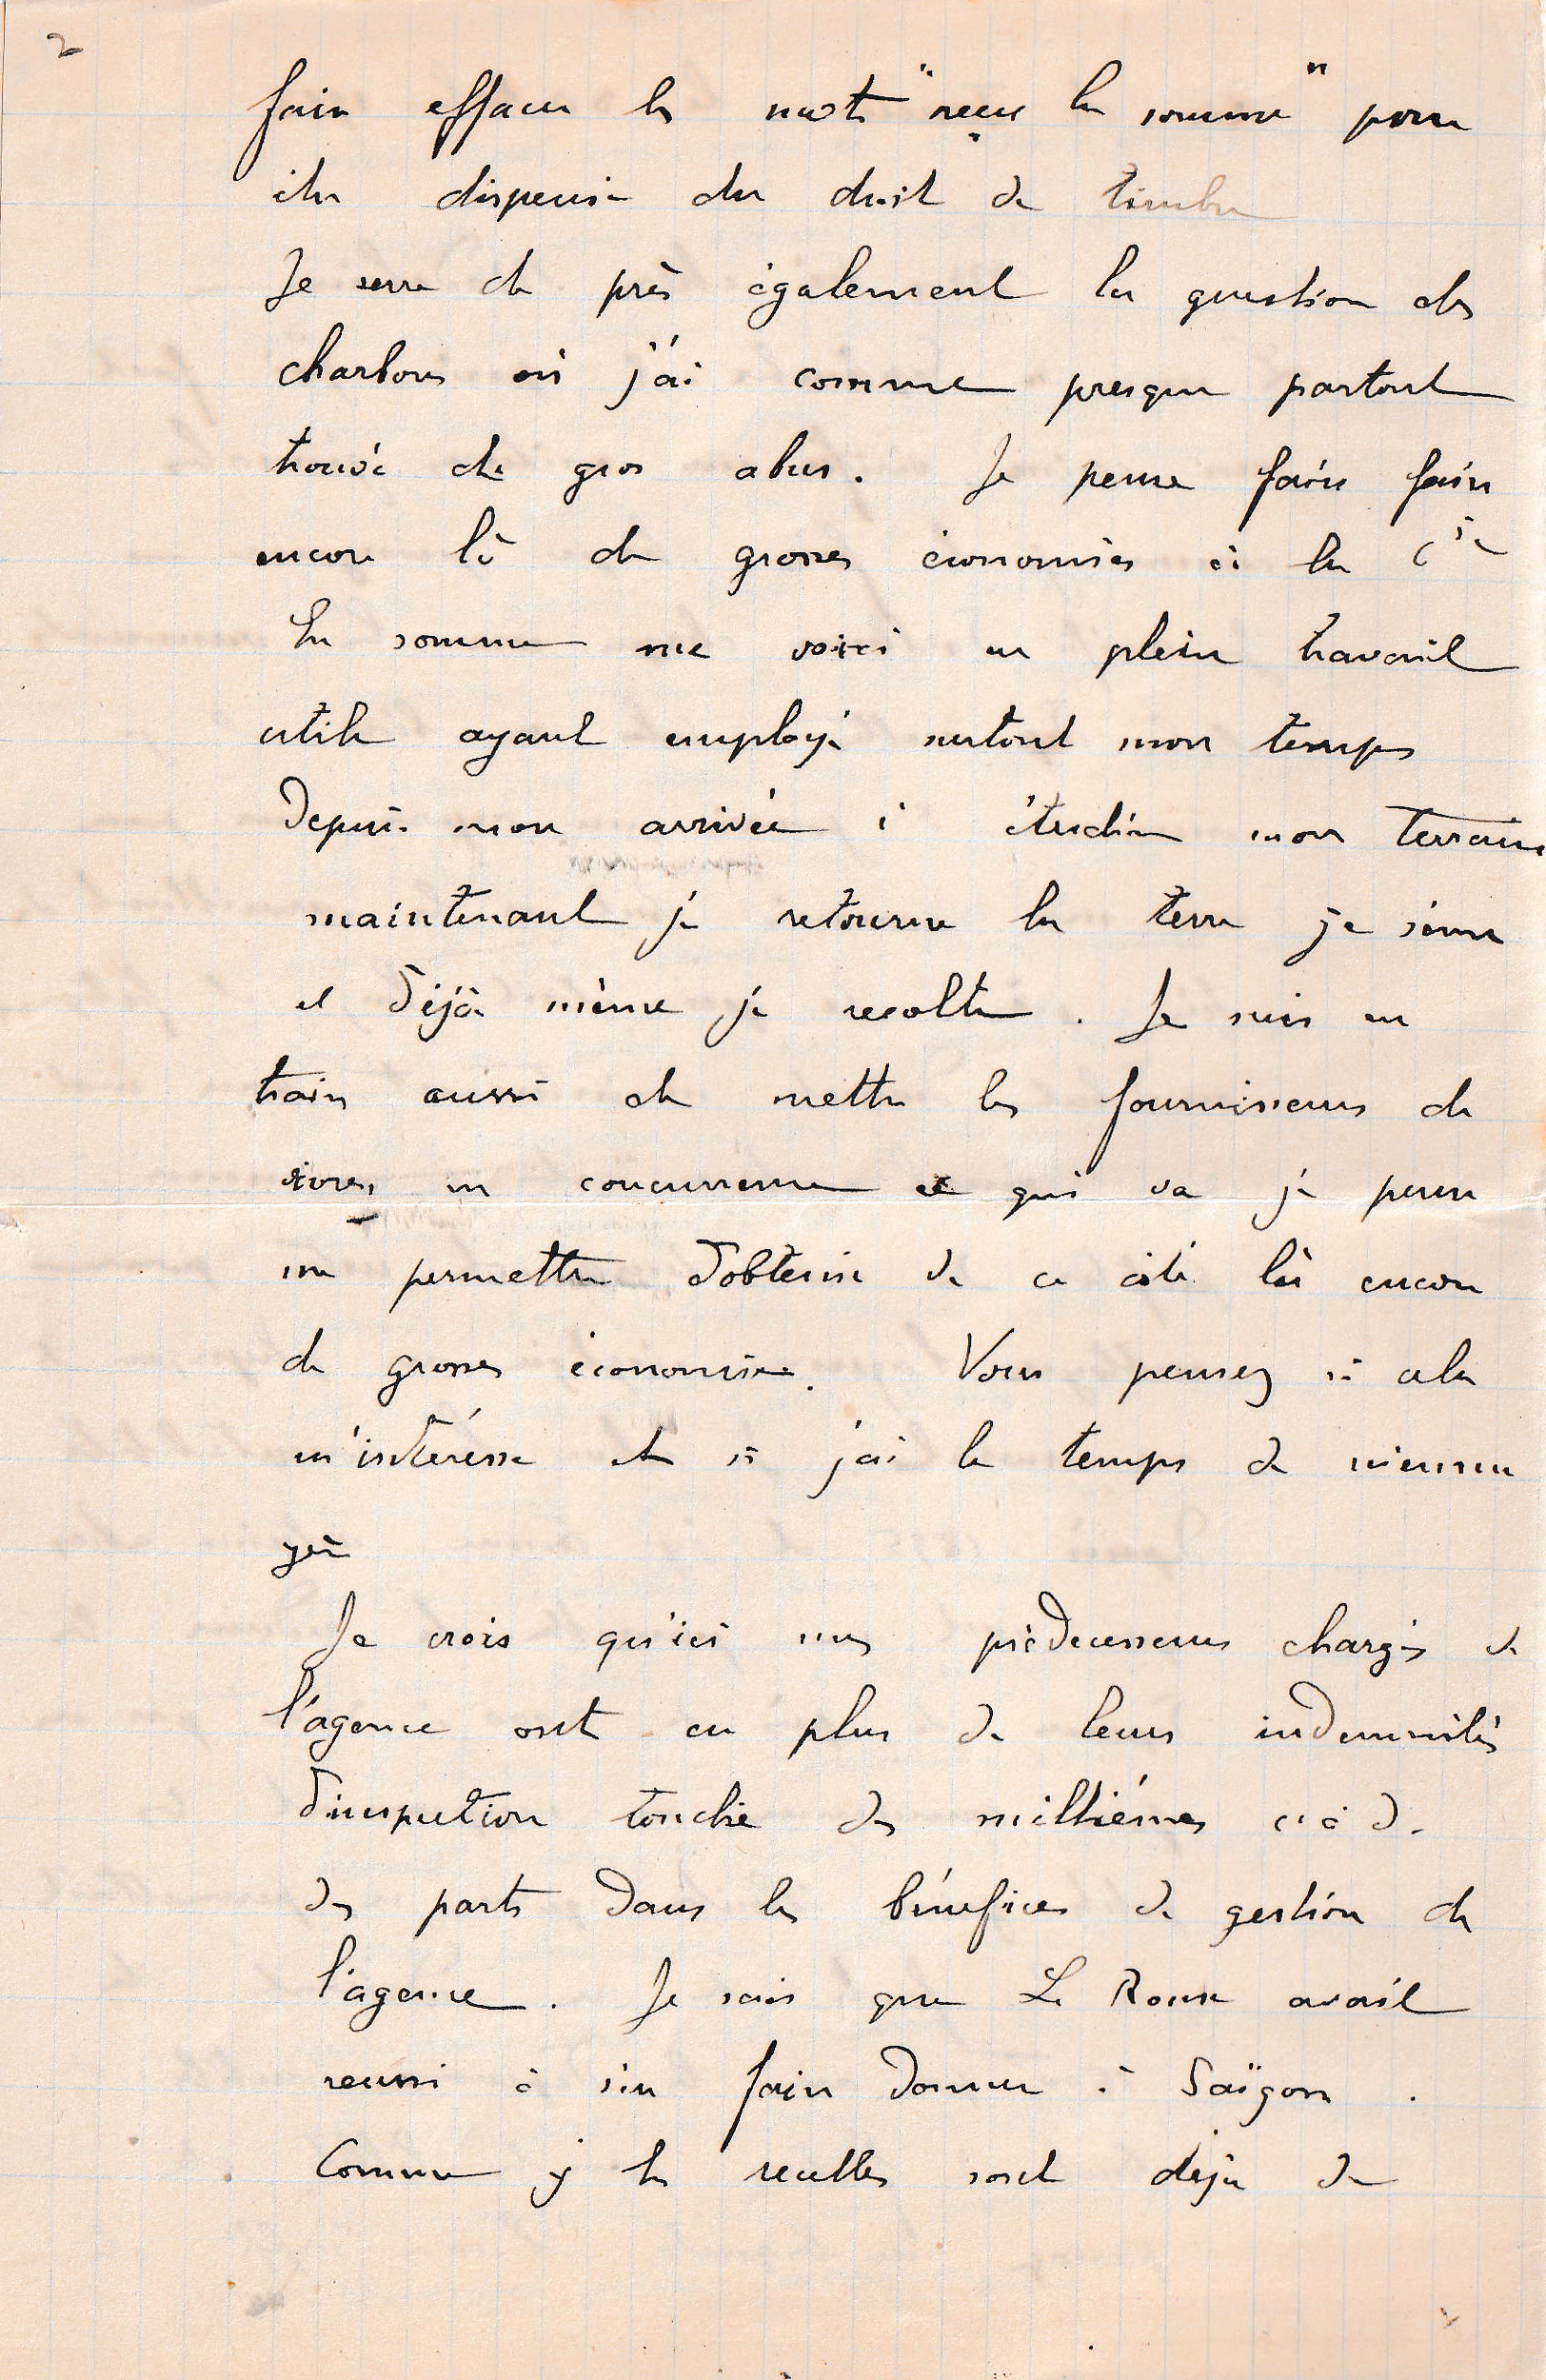 2
faire effacer les mots "reçu la somme" pour
être dispensé du droit de timbre
Je serre de près également la question des
charbons où j'ai comme presque partout
trouvé de gros abus. Je pense faire faire
encore là de grosses économies à la Cie
En somme me voici en plein travail
utile ayant employé surtout mon temps
depuis mon arrivée à étudier mon terrain
maintenant je retourne la terre je sème
et déjà même je recolte. Je suis en
train aussi de mettre les fournisseurs de
vivres en concurrence ce qui va je pense
me permettre d'obtenir de ce côté là encore
de grosses économies. Vous pensez si cela
m'intéresse et si j'ai le temps de m'ennu
yer
Je crois qu'ici mes prédécesseurs chargés de
l'agence ont en plus de leurs indemnités
d'inspection touché des millièmes c'à d.
des parts dans les bénéfices de gestion de
l'agence. Je sais que Le Roux avait
reussi à s'en faire donner à Saïgon.
Comme les recettes sont déjà de